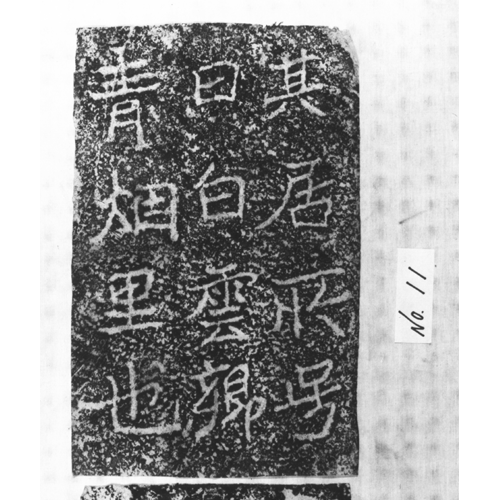 其居所号
曰白雲鄉
青烟里也
No. 11